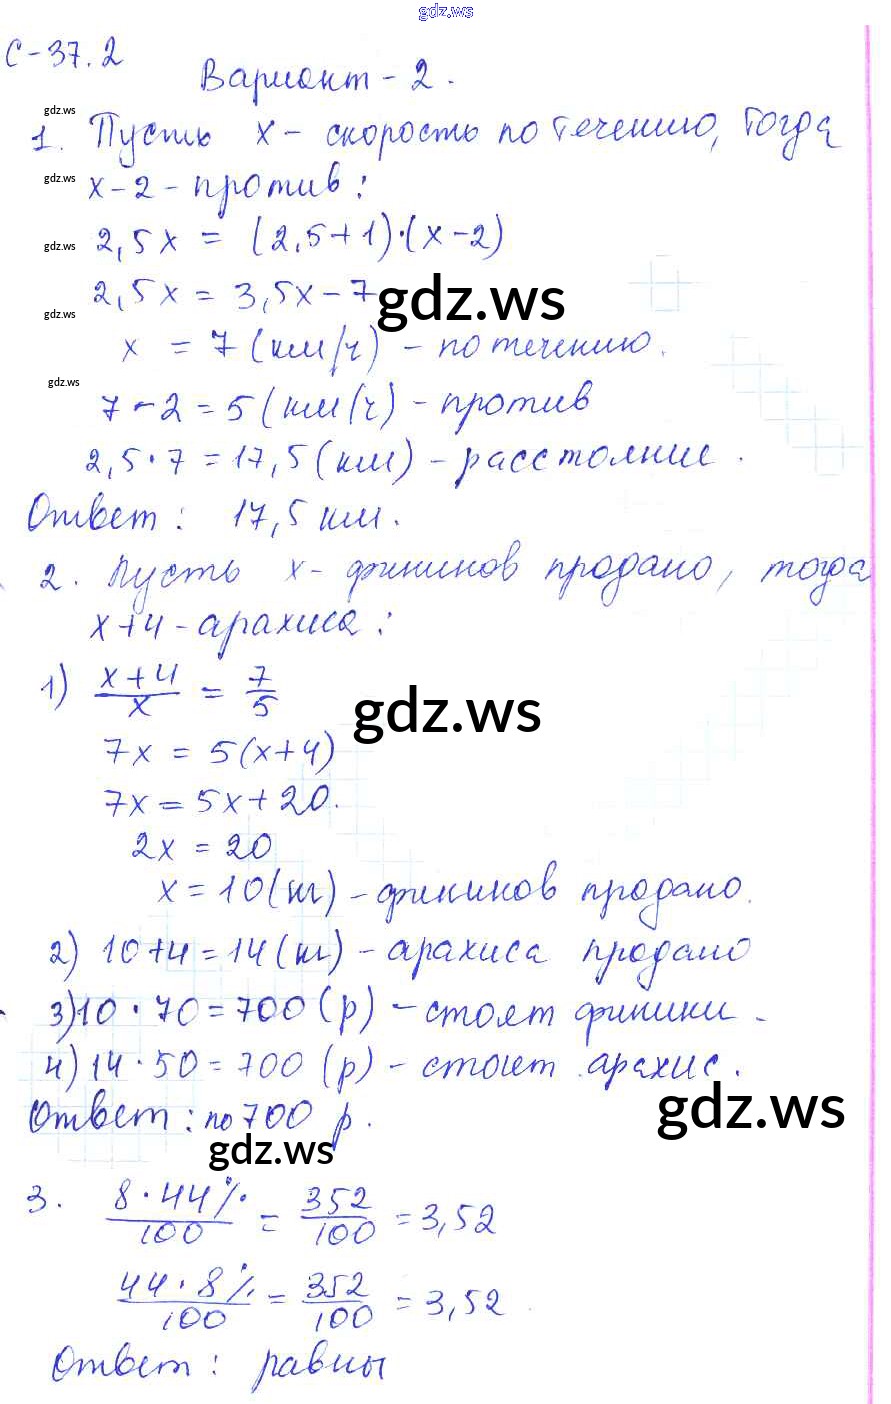 gdz.ws
С-37.2
Вариант-2.
gdz.ws
1. Пусть x- скорость по течению, тогда
gdz.ws
x-2-против:
gdz.ws
2,5x = (2,5+1)·(x-2)
2,5x = 3,5x-7
gdz.ws
gdz.ws
x = 7 (км/ч) - по течению.
gdz.ws
7-2 = 5 (км/ч) - против
2,5·7 = 17,5 (км) - расстояние.
Ответ: 17,5 км.
2. Пусть x- фиников продано, тогда
x+4-арахиса:
1) (x+4)/x = 7/5
gdz.ws
7x = 5(x+4)
7x = 5x+20.
2x = 20
x = 10 (кг) - фиников продано.
2) 10+4 = 14 (кг) - арахиса продано
3) 10·70 = 700 (р) - стоят финики.
4) 14·50 = 700 (р) - стоит арахис.
gdz.ws
Ответ: по 700 р.
gdz.ws
3. 8·44%/100 = 352/100 = 3,52
44·8%/100 = 352/100 = 3,52.
Ответ: равны